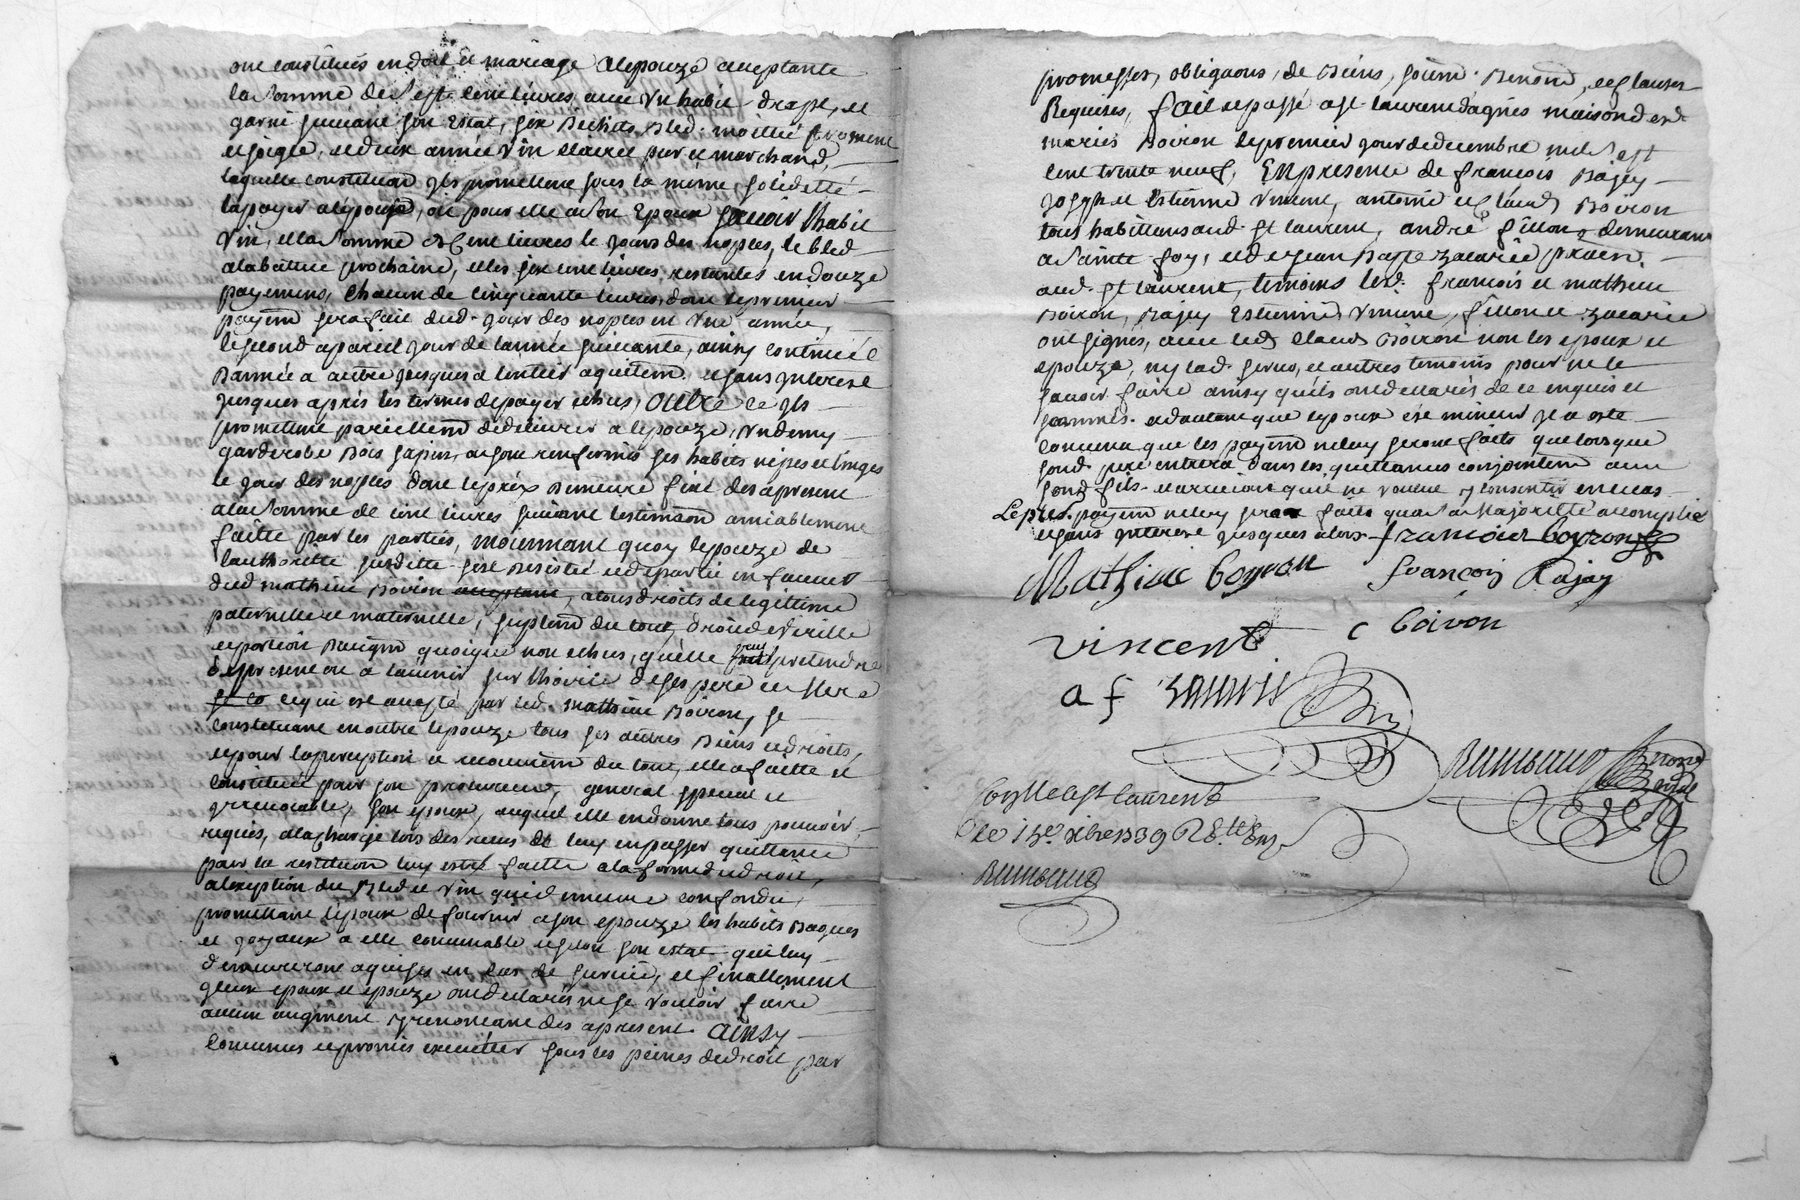 ont constitués en dot de mariage a lepouze acceptante
la somme de sept cent livres, avec un habit drapt, et
garni suivant son estat, six bichets bled, moitié froment
et seigle, et deux année vin clairet pur et marchand,
laquelle constitution ils promettent sous la meme solidetté
la payer a lepouze, ou pour elle a son Epoux scavoir lhabit
vin, et la somme de Cent livres le jours des nopces, le bled
a la battue prochaine, et les six cent livres restantes en douze
payemens, chacun de cinquante livres, dont le premier
payemt sera fait dud. jour des nopces en une année,
le second a pareil jour de lannée suivante, ainsy continué
dannée a autre jusques a lentier aquittemt. et sans jnterest
jusques après les termes de payer echus, Outre ce ils
promettent pareillemt de delivrer a lepouze, un demy
garderobe bois sapin, ou sont renfermés ses habits nipes et linges
le jour des nopces dont le prix demeure fixé des apresent
a la somme de cent livres suivant lestimaon amiablement
faitte par les parties, moiennant quoy lepouze de
lauthoritte susditte sest desistée et departie en faveur
dud mathieu Boiron acceptant, a tous droits de legittime
paternelle et maternelle, suplemt du tout, droit de virille
et portion daugmt quoique non echus, quelle peut pretendre
de present ou a lavenir sur lhoirie de ses pere et Mere
se co ce qui est accepté par led. mathieu Boiron, se
constituant en outre lepouze tous ses autres biens et droits,
et pour la perception et recouvremt du tout, elle a faitte et
constitué pour son procureur, general special et
jrrevocable, son epoux, auquel elle en donne tous pouvoir
requis, a la charge lors des recus de luy en passer quittance
pour la restitution luy estre faitte a la forme du droit,
a lexeption du Bled et vin qui demeure confondu,
promettant lepoux de fournir a son epouze les habits bagues
et joyaux a elle convenable et selon son estat qui luy
demeureront aquises en cas de survie, et finallement
yceux epoux et epouze ont declarés ne se vouloir faire
aucun augment y renonceant des apresent. Ainsy
convenus et promis executter sous les peines de droit par
promesses, obligaons, de biens, soumn. Renonn, et clauses
Requises, fait et passé a st laurent dagnés maison desd
mariés Boiron le premier jour de decembre mil sept
cent trente neuf, En presence de francois Rajey
joseph et Estienne Vincent, antoine et claude Boiron
tous habittans aud. st laurent, andré fillon demeurant
a sainte foy, et de jean Bapte zacarie praen.
aud. st laurent, temoins led. francois et mathieu
Boiron, Rajey Estienne Vincent, fillon et zacarie
ont signés, avec led claude Boiron non les epoux et
epouze, ny lad. servs, et autres temoins pour ne le
scavoir faire ainsy quils ont declarés de ce enquis et
sommés. a dautant que lepoux est mineur il a esté
convenu que les payemt ne luy seront faits que lorsque
sond. pere entrera dans les quittances conjointemt avec
sond fils. et au cas quil ne voulut y consentir en ce cas
Lepred. payemt ne luy sera faits qua sa Majoritté accomplie
et sans jnterest jusques alors. francoier boyron
Mathieu boyron francois Rajay
vincent c boiron
a f zacarie
Rambaud
Conlle a st Laurent
le 15e xbre 1739 R 8 lt 8s
Rambaud